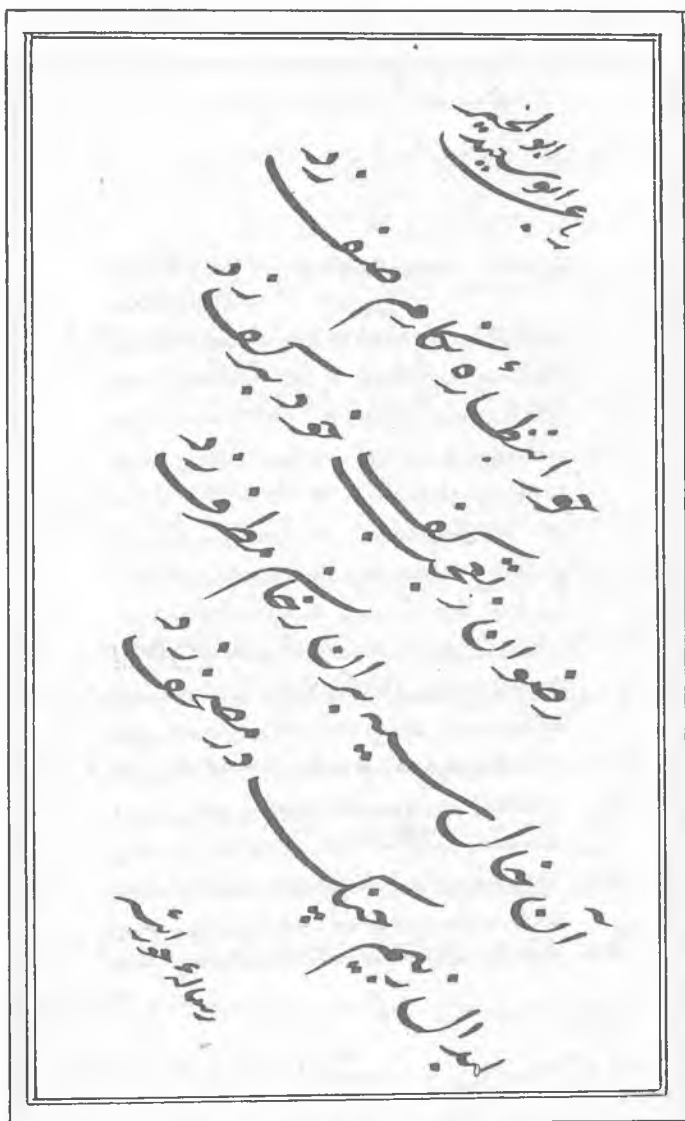 رباعی ابوسعید ابوالخیر
حورا بنظارهٔ نگارم صف زد
رضوان ز تعجب کف خود بر کف زد
آن خال سیه بر آن رخانم مطرف زد
ابدال ز بیم چنگ در مصحف زد
رسالهٔ حورائیه